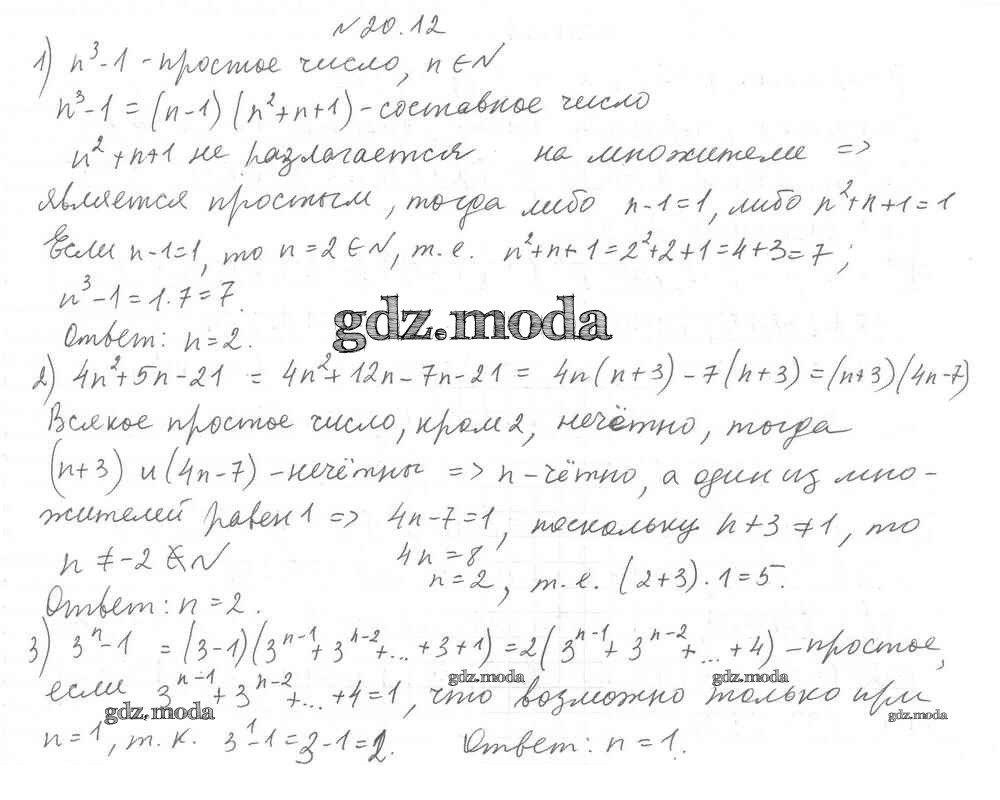 №20.12
1) n³-1 - простое число, n∈N
n³-1 = (n-1)(n²+n+1) - составное число
n²+n+1 не разлагается на множители =>
является простым, тогда либо n-1=1, либо n²+n+1=1
Если n-1=1, то n=2∈N, т.е. n²+n+1=2²+2+1=4+3=7;
n³-1=1·7=7.
Ответ: n=2.
gdz.moda
2) 4n²+5n-21 = 4n²+12n-7n-21 = 4n(n+3)-7(n+3)=(n+3)(4n-7)
Всякое простое число, кром 2, нечётно, тогда
(n+3) и (4n-7) - нечётны => n-чётно, а один из мно-
жителей равен 1 => 4n-7=1, поскольку n+3≠1, то
n≠-2∉N 4n=8
n=2, т.е. (2+3)·1=5.
Ответ: n=2.
3) 3ⁿ-1 = (3-1)(3ⁿ⁻¹+3ⁿ⁻²+...+3+1)=2(3ⁿ⁻¹+3ⁿ⁻²+...+4) - простое,
gdz.moda gdz.moda
если 3ⁿ⁻¹+3ⁿ⁻²+...+4=1, что возможно только при
gdz.moda gdz.moda
n=1, т.к. 3¹-1=3-1=2. Ответ: n=1.